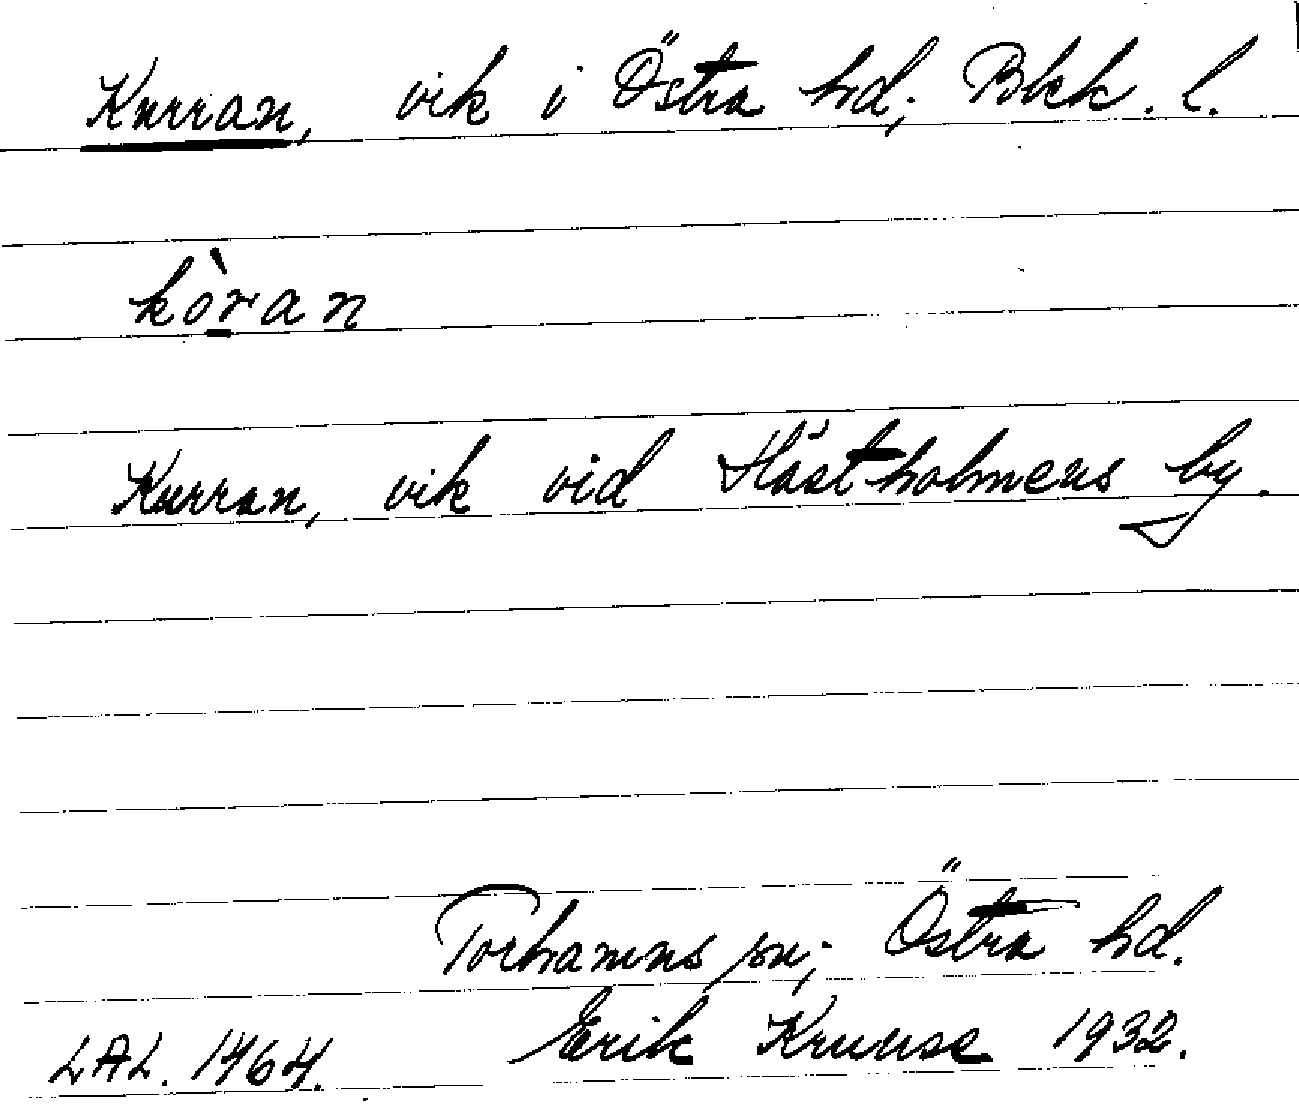 Kurran, vik i Östra hd; Blek. l.
kòran
Kurran, vik vid Hästholmens by.
Torhamns sn; Östra hd.
LAL. 1464. Erik Kruuse 1932.